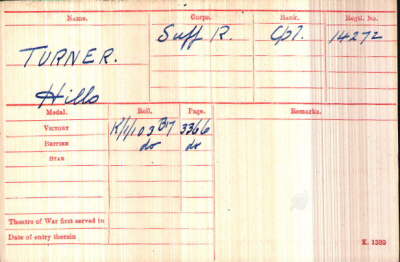 Name. Corps. Rank. Regtl. No.
TURNER. Suff R. Cpl. 14272
Hills
Medal. Roll. Page. Remarks.
VICTORY K/1/103 B17 3366
BRITISH do do
STAR
Theatre of War first served in
Date of entry therein
K. 1380